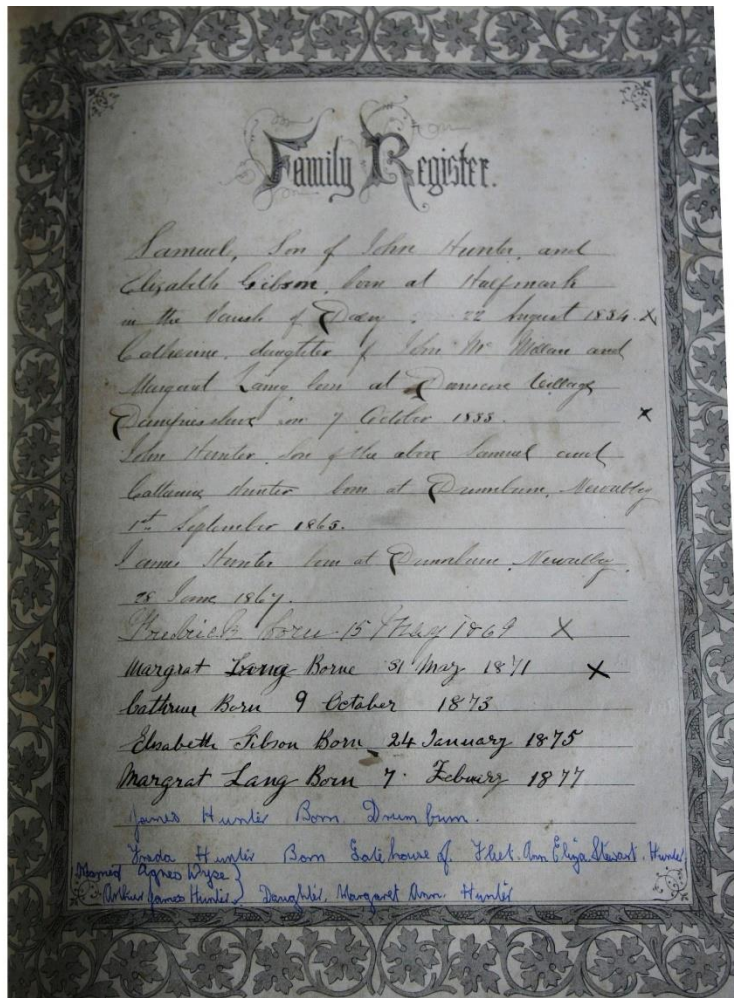 Family Register.
Samuel, Son of John Hunter, and
Elizabeth Gibson, born at Halfmark
in the Parish of 22 August 1834. X
Catherine, daughter of John Mc Millan and
Margaret Lang born at Dunscore Village
Dumfriesshire on 7 October 1838. X
John Hunter, Son of the above Samuel and
Catherine Hunter born at Drumburn, Newabbey
1st September 1865.
James Hunter born at Drumburn, Newabbey.
28 June 1867.
Fredrick born 15 May 1869 X
Margrat Long Borne 31 May 1871 X
Cathrine Born 9 October 1873
Elisabeth Gibson Born 24 January 1875
Margrat Lang Born 7. Febuary 1877
James Hunter Born Drumburn.
Freda Hunter Born Gatehouse of Fleet. Ann Eliza Stewart. Hunter
Married Agnes Wyse }
Arthur James Hunter } Daughter. Margaret Ann. Hunter